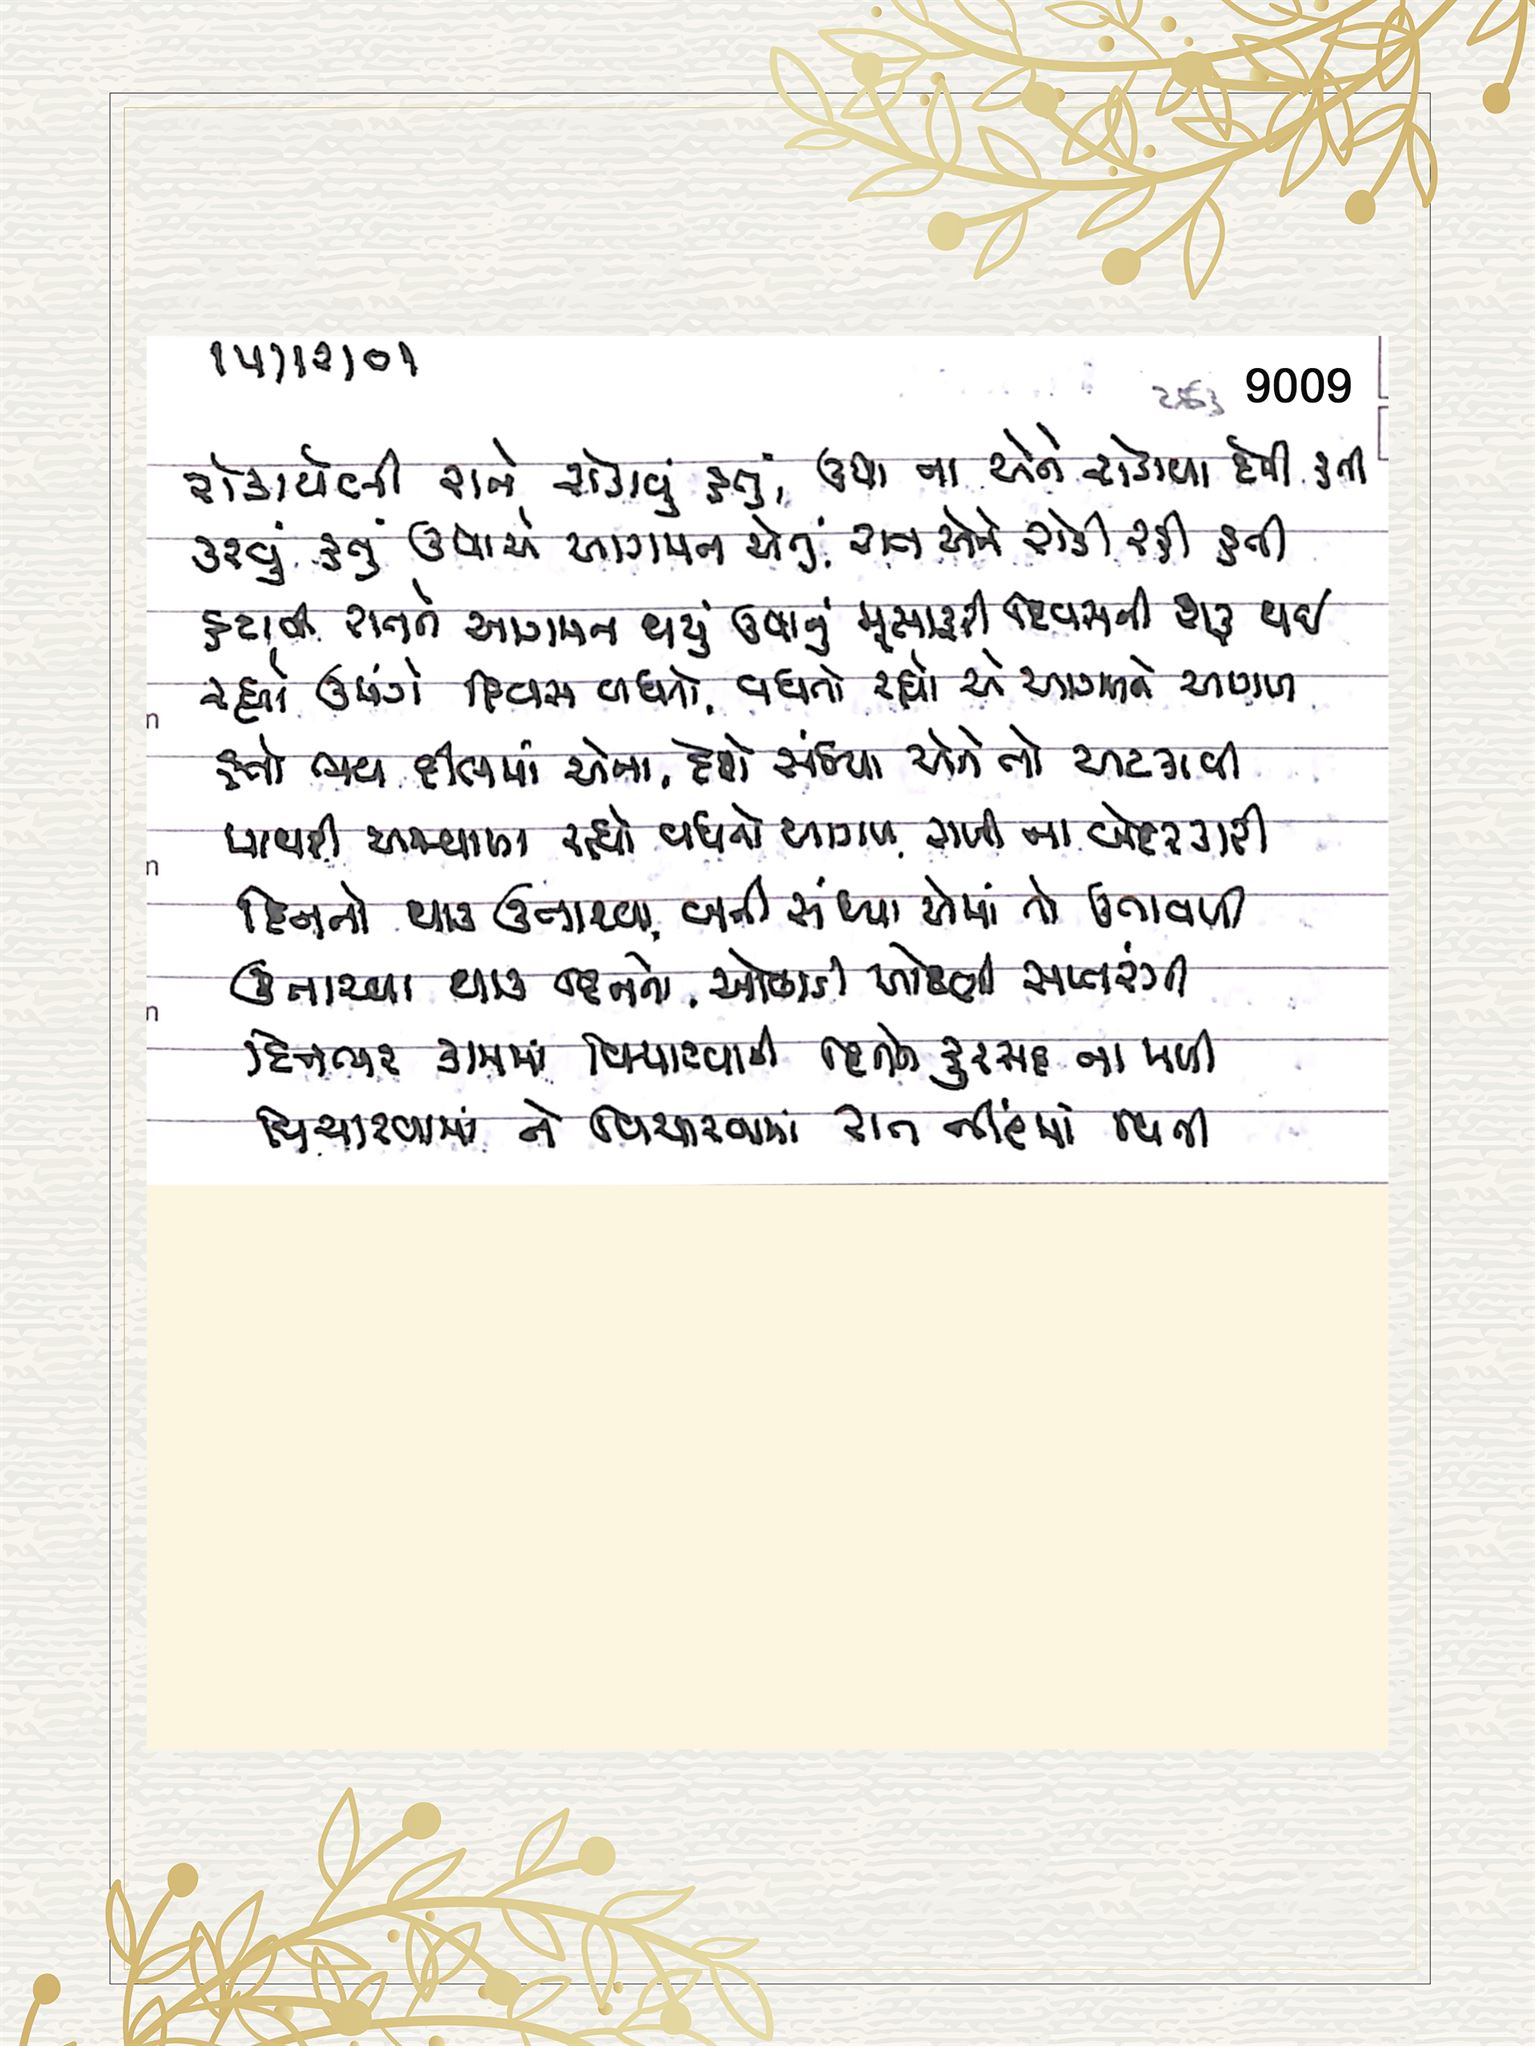 ૧૫)૧૨)૦૧
9009
રોકાયેલી રાતે રોકાવું હતું, ઉષા ના એને રોકાવા દેતી હતી
કરવું હતું ઉષાએ આગમન એનું, રાત એને રોકી રહી હતી
હટાવી રાતને આગમન થયું ઉષાનું મૂસાફરી દિવસની શરૂ થઈ
રહ્યો ઉમંગે દિવસ વધતો, વધતો રહ્યો એ આગળને આગળ
હતો ભય દીલમાં એના, દેશે સંધ્યા એને તો અટકાવી
રહ્યો વધતો આગળ, રાખી ના બેદરકારી
દિનનો થાક ઉતારવા, બની સંધ્યા એમાં તો ઉતાવળી
ઉતારવા થાક દિનનો, ઓઢાડી ઓઢણી સપ્તરંગી
દિનભર કામમાં વિચારવાની દિનને ફુરસદ ના મળી
વિચારવામાં ને વિચારવામાં રાત નીંદમાં વિતી